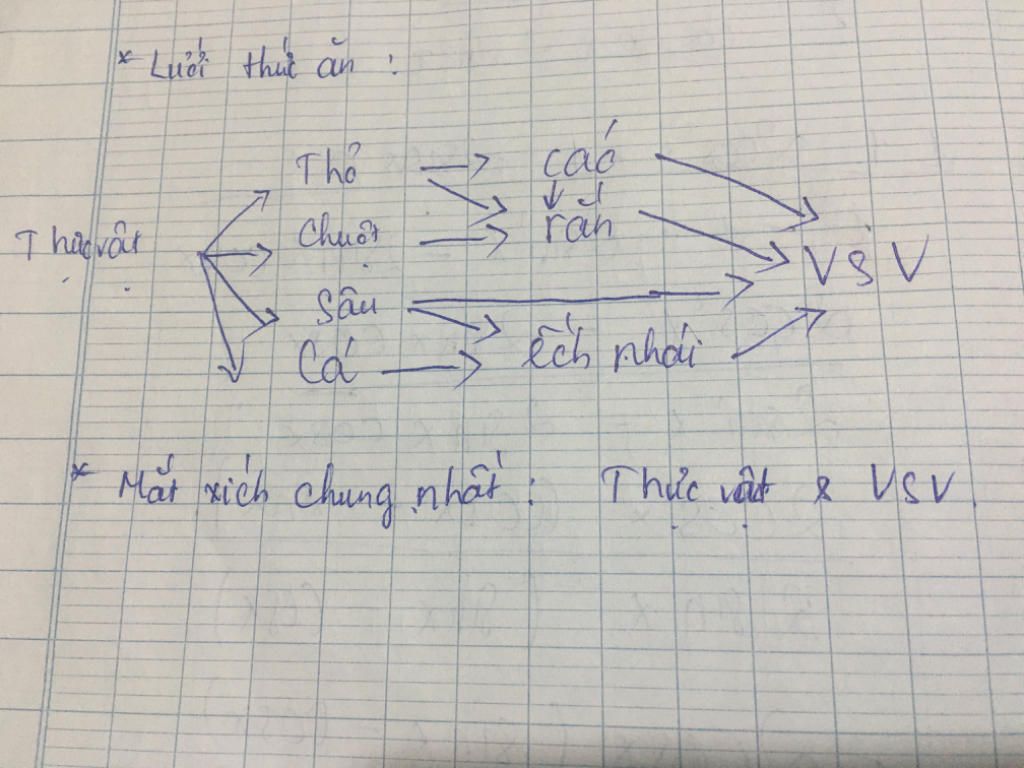 * Lưới thức ăn :
Thỏ → cáo
Thực vật Chuột → rắn VSV
Sâu →
Cá → ếch nhái
* Mắt xích chung nhất : Thực vật & VSV